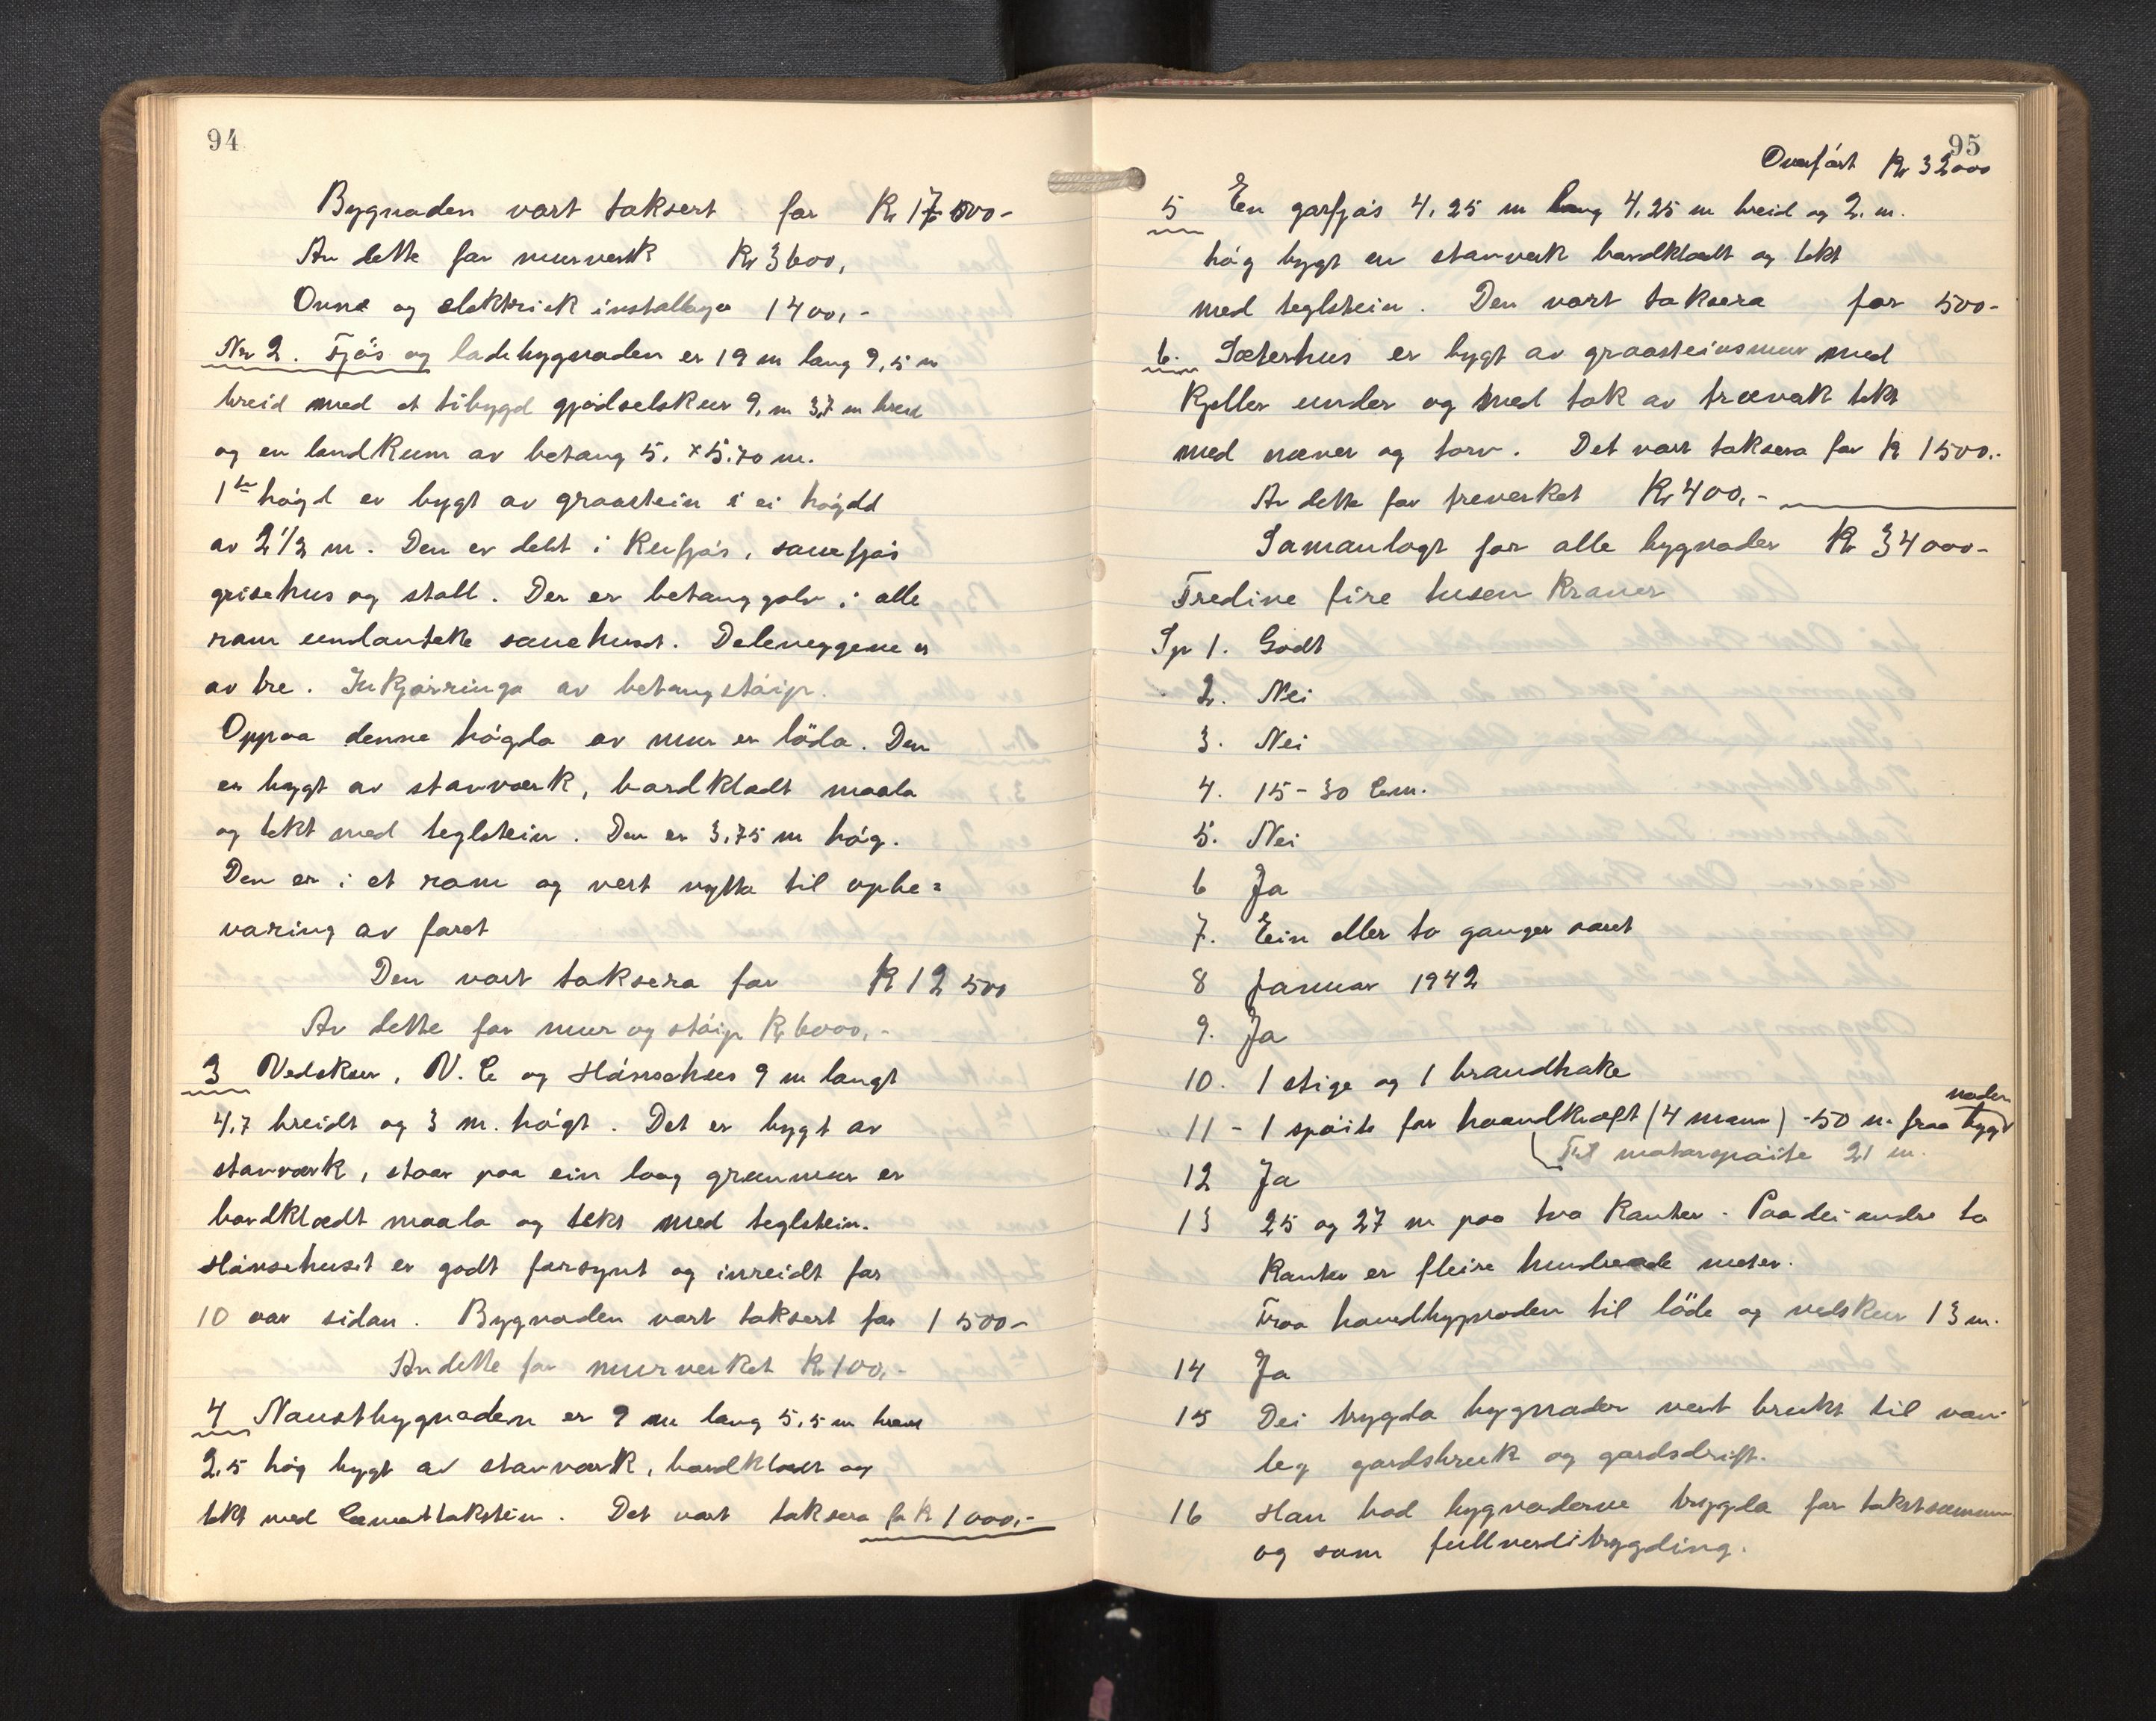 94
Bygnaden vart taksert for Kr 17000-
Av dette for murverk Kr 3600,
Omne og elektrisk 1400,-
Nr 2. Fjös og ladebygnaden er 19 m lang 9,5 m
breid med et tibygd gjödselskur 9, m 3,7 m breid
og en landkum av betong 5, x 5.70 m.
1ste högd er bygt av graastein i ei högdd
av 2 1/2 m. Den er delt i Kufjös, sauefjös
grisehus og stall. Der er betonggolv i alle
rom undanteke sauehuset. Deleveggene er
av tre. Inkjörringa av betongstöip.
Oppaa denne högda av mur er löda. Den
er bygt av stavværk, bordkladt maala
og tekt med teglstein. Den er 3,75 m hög.
Den er i et rom og vert nytta til opbe=
varing av foret
Den vart taksera for Kr 12 500
Av dette for mur og stöip Kr 6000,-
3 Vedskur, V. C og Hönsehus 9 m langt
4,7 breidt og 3 m. högt. Det er bygt av
stavværk, staar paa ein laag grunmur er
bordklædt maala og tekt med teglstein.
Hönsehuset er godt forsynt og inreidt for
10 aar sidan. Bygnaden vart taksert for 1 500-
Av dette for murverket Kr 100,-
4 Naustbygnaden er 9 m lang 5,5 m breid
2,5 hög bygt av stavværk, bordklædt og
tekt med Cementtakstein. Det vart taksera for Kr 1 000,-
95
Overfört Kr 32000
5 En gorfjös 4,25 m lang 4,25 m breid og 2. m.
hög bygt en stavverk bordklædt og tekt
med teglstein. Den vart taksera for 500-
6. Sæterhus er bygt av graasteinsmur med
Kjeller under og med tak av træverk tekt
med næver og torv. Det vart taksera for Kr 1500.-
Av dette for treverket Kr 400,-
Samanlagt for alle bygnader Kr 34000-
Tredive fire tusen Kroner
Sp 1. Godt
2. Nei
3. Nei
4. 15-30 Cm.
5. Nei
6 Ja
7. Ein eller to ganger aaret
8 Januar 1942
9. Ja
10. 1 stige og 1 brandhake
11 - 1 spöite for haandkraft (4 mann) -50 m. fraa bygnaden
Til motorspöite 21 m.
12 Ja
13 25 og 27 m paa tvo Kanter. Paa dei andre to
Kanter er fleire hundreade meter.
Fraa hovedbygnaden til löde og vedskur 13 m.
14 Ja
15 Dei trygda bygnader vert brukt til van-
leg gardsbruk og gardsdrift.
16 Han bad bygnaderne trygda for takstsummen
og som fullverditrygding.